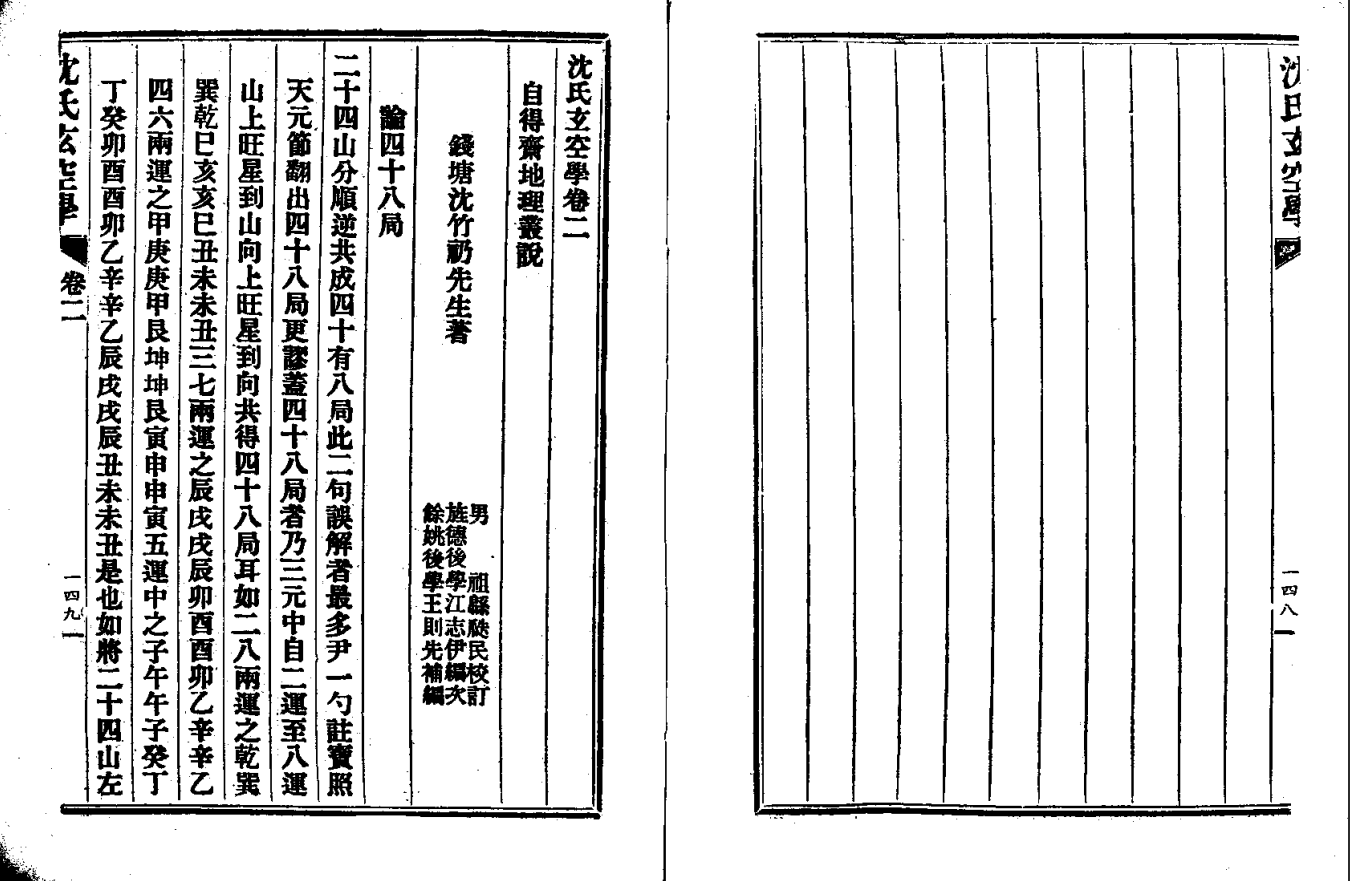 沈氏玄空學
一四八
沈氏玄空學卷二
自得齋地理叢說
錢塘沈竹礽先生著
男 祖緜瓞民校訂
旌德後學江志伊編次
餘姚後學王則先補編
論四十八局
二十四山分順逆共成四十有八局此二句誤解者最多尹一勺註寶照
天元節翻出四十八局更謬蓋四十八局者乃三元中自二運至八運
山上旺星到山向上旺星到向共得四十八局耳如二八兩運之乾巽
巽乾巳亥亥巳丑未未丑三七兩運之辰戌戌辰卯酉酉卯乙辛辛乙
四六兩運之甲庚庚甲艮坤坤艮寅申申寅五運中之子午午子癸丁
丁癸卯酉酉卯乙辛辛乙辰戌戌辰丑未未丑是也如將二十四山左
沈氏玄空學 卷二
一四九